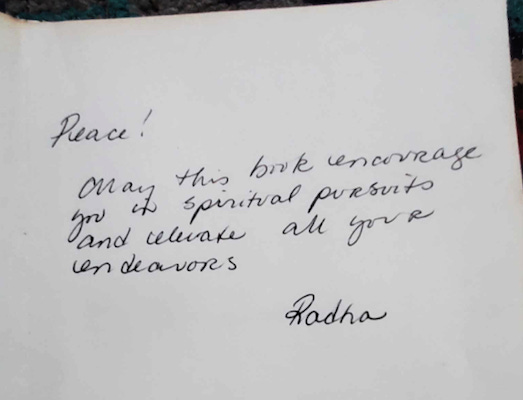 Peace!
May this book encourage
you in spiritual pursuits
and elevate all your
endeavors
Radha